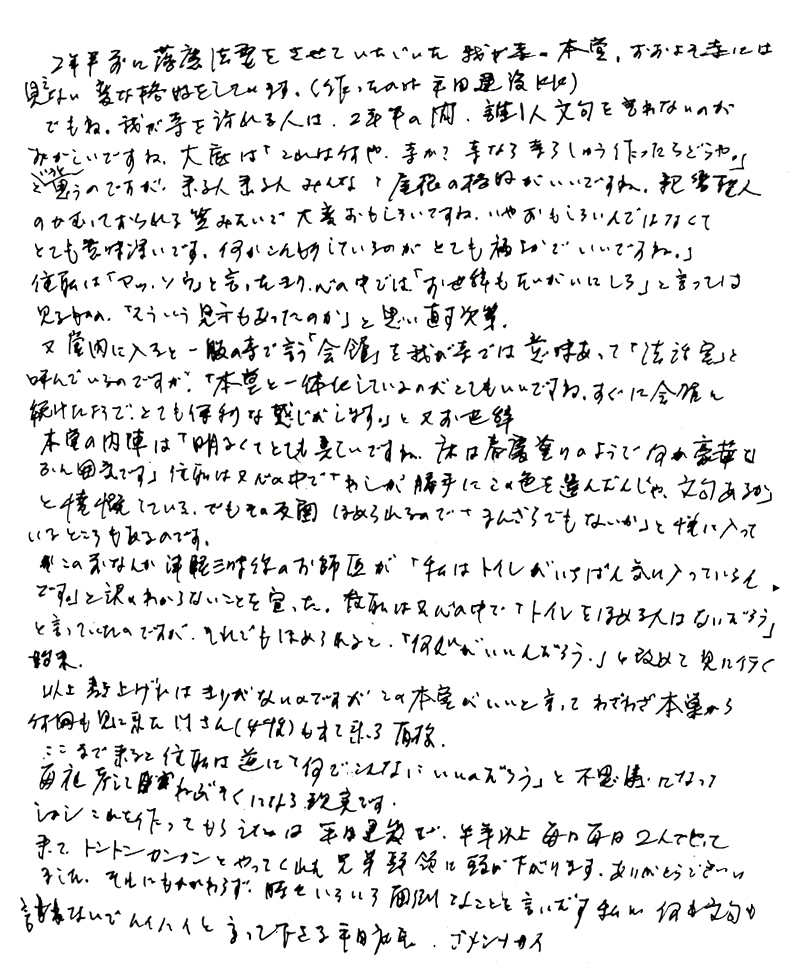 2年半前に落慶法要をさせていただいた我が寺の本堂、おおよそ寺には
見えない変な格好をしています。(作ったのは平田建設(株))
でもね。我が寺を訪れる人は、2年半の間、誰1人文句を言わないのが
おかしいですね。大底は「これは何や、寺か?寺なら寺らしゅう作ったらどうや。」
と言うと思うのですが、来る人来る人みんな「屋根の格好がいいですね。親鸞聖人
のかむっておられる笠みたいで大変おもしろいですね。いやおもしろいんではなくて
とても意味深いです。何かこんもりしているのがとても穏やかでいいですね。」
住職は「アッ、ソウ」と言ったきり、心の中では「お世辞もたいがいにしろ」と言っては
見るものの、「そういう見方もあったのか」と思い直す次第。
又、堂内に入ると一般の寺で言う「会館」を我が寺では意味あって「法話室」と
呼んでいるのですが、「本堂と一体化しているのがとてもいいですね。すぐに会館に
続けたようで、とても便利な感じがします。」と又お世辞
本堂の内陣は「明るくてとても美しいですね、床は春慶塗りのようで何か豪華な
ふん囲気です」住職は又心の中で「わしが勝手にこの色を選んだんじゃ、文句あるか」
と憤慨している。でもその反面ほめられるので「まんざらでもないか」と悦に入って
いるところもあるのです。
この前なんか津軽三味線のお師匠が「私はトイレがいちばん気に入っているん
です。」と訳のわからないことを言った。住職は又心の中で「トイレをほめる人はないだろう」
と言っていたのですが、それでもほめられると、「何処がいいんだろう。」と改めて見に行く
始末。
以上書き上げればきりがないのですがこの本堂がいいと言ってわざわざ本巣から
何回も見に来たけさん(4組)も出て来る有様。
ここまで来ると住職は逆に「何でこんなにいいのだろう」と不思議になって
毎夜 ねぶそくになる現実です。
しかしこれを作ってもらうには平田建設が、半年以上毎日毎日2人で
来て、トントンカンカンとやってくれた兄弟頭領に頭が下がります。ありがとうござい
ました。それにもかかわらず、時々いろいろ面倒なことを言いだす私に何も文句も
言わないでハイハイと言って下さる平田社長、ゴメンナサイ